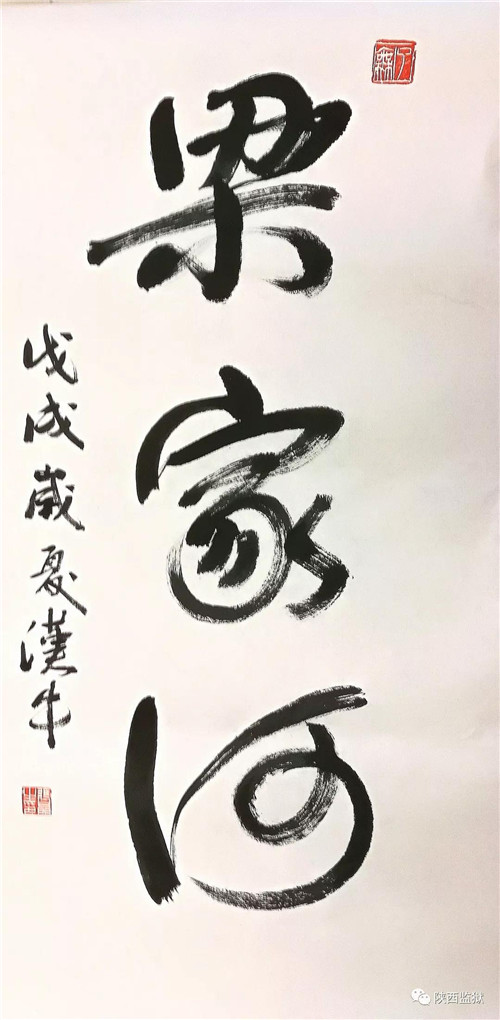 梁家河
戊戌歲夏漢牛
陕西监狱